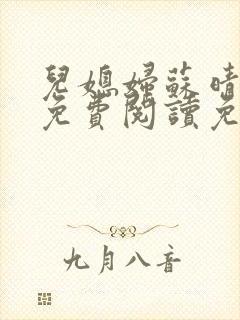 兒媳婦蘇晴
免費閱讀免
九月八音